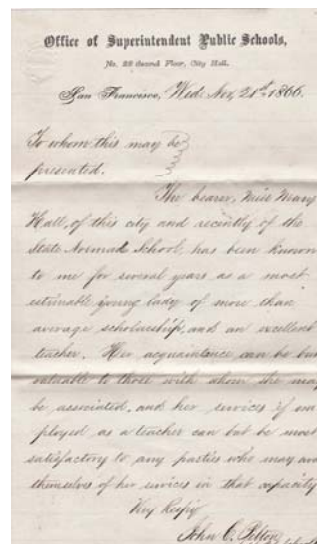 Office of Superintendent Public Schools,
No. 22 Second Floor, City Hall.
San Francisco, Wed. Nov, 21st 1866.
To whom this may be
presented.
The bearer, Miss Mary
Hall, of this city and recently of the
State Normal School, has been known
to me for several years as a most
estimable young lady of more than
average scholarship, and an excellent
teacher. Her acquaintance can be but
valuable to those with whom she may
be associated, and her services if em
ployed as a teacher can but be most
satisfactory to any parties who may av
themselves of her services in that capacity
Very Respy
John C. Pelton